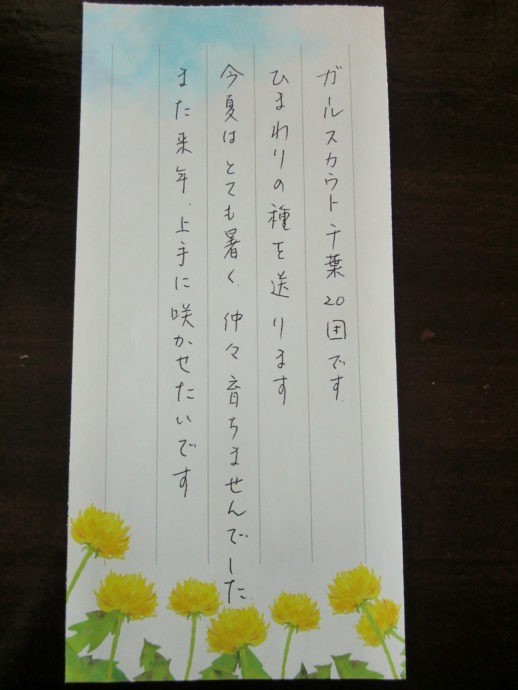 ガールスカウト千葉20団です
ひまわりの種を送ります
今夏はとても暑く、仲々育ちませんでした
また来年、上手に咲かせたいです